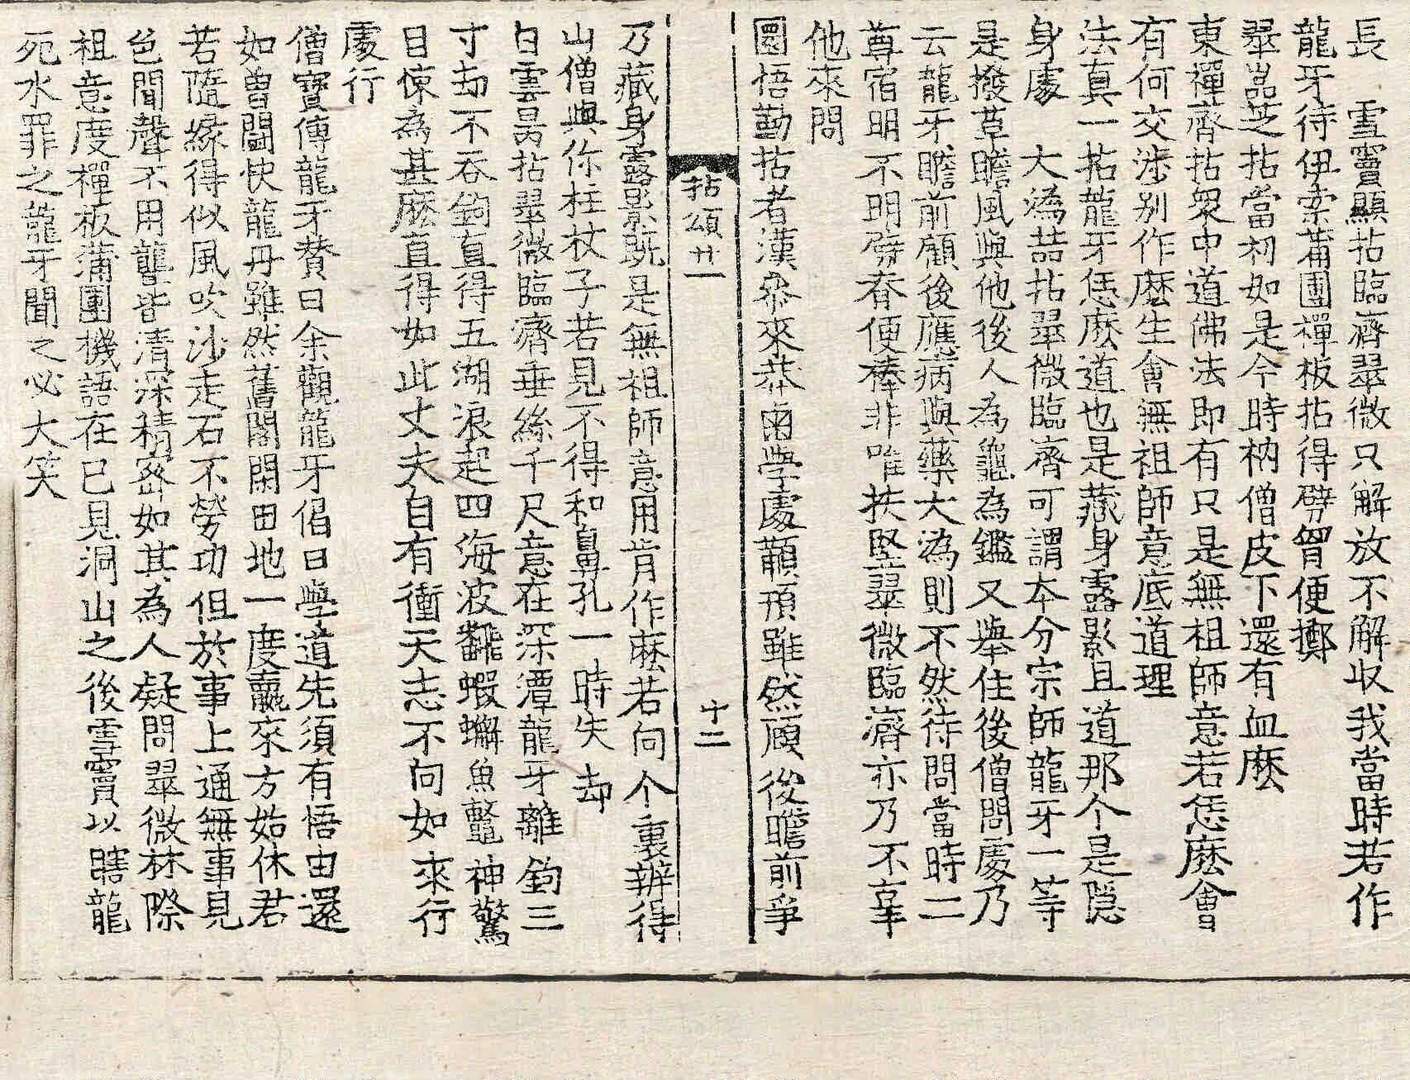 長　雪竇顯拈臨濟翠微只解放不解収我當時若作
龍牙待伊索蒲團禪板拈得劈胷便擲
翠嵓芝拈當初如是今時衲僧皮下還有血麽
東禪齊拈衆中道佛法即有只是無祖師意若恁麽會
有何交涉別作麽生會無祖師意底道理
法真一拈龍牙恁麽道也是藏身露影且道那个是隱
身處　大潙喆拈翠微臨濟可謂本分宗師龍牙一等
是撥草瞻風與他後人為龜為鑑又舉住後僧問處乃
云龍牙瞻前顧後應病與藥大潙則不然待問當時二
尊宿明不明劈脊便棒非唯扶竪翠微臨濟亦乃不辜
他來問
圜悟勤拈者漢叅來莽鹵學處顢頇雖然顧後瞻前爭
拈頌廿一
十二
乃藏身露影旣是無祖師意用肯作麽若向个裏辨得
山僧與你柱杖子若見不得和鼻孔一時失却
白雲昺拈翠微臨濟垂絲千尺意在深潭龍牙離鉤三
寸却不吞鉤直得五湖浪起四海波飜蝦蠏魚鼈神驚
目悚為甚麽直得如此丈夫自有衝天志不向如來行
處行
僧寶傳龍牙賛曰余觀龍牙偈曰學道先須有悟由還
如曾鬪快龍舟雖然舊閣閑田地一度贏來方始休君
若隨緣得似風吹沙走石不勞功但於事上通無事見
色聞聲不用聾皆清深精密如其為人疑問翠微林際
祖意度禪板蒲團機語在已見洞山之後雪竇以瞎龍
死水罪之龍牙聞之必大笑